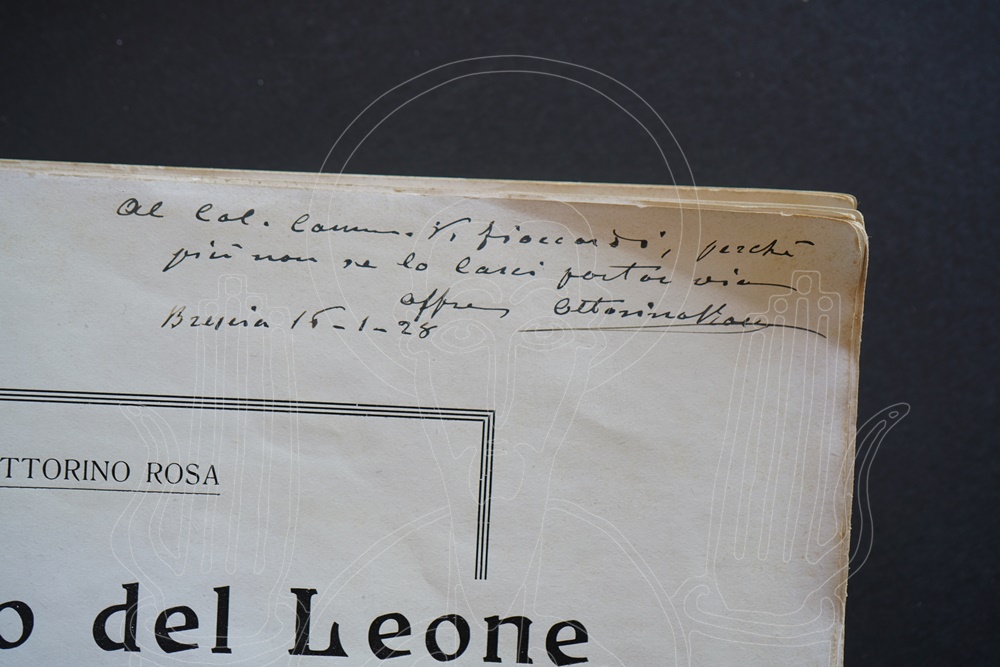 Al Col. Comm. V. Fioccardi, perchè
più non se lo lasci portar via
offre Ottorino Rosa
Brescia 15-1-28
TTORINO ROSA
o del Leone